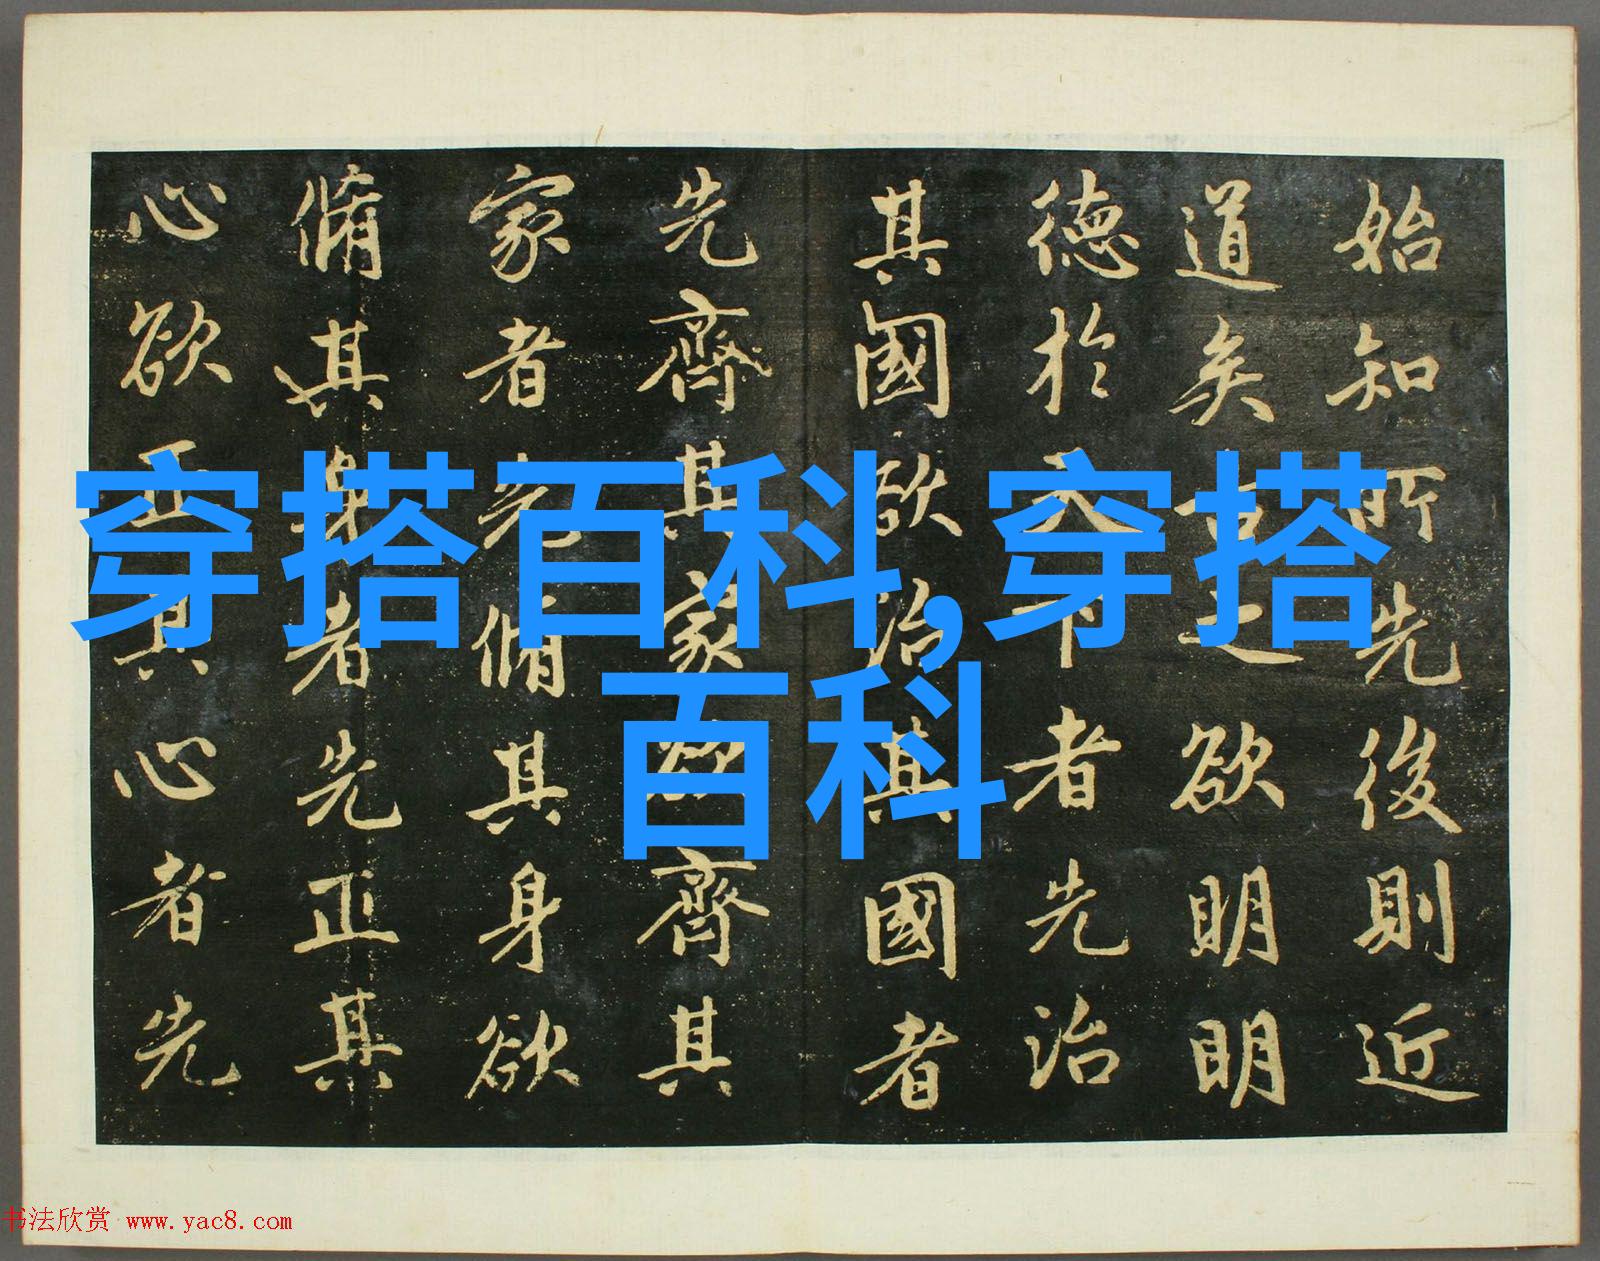 始知所先後則近
道矣古之欲明明
德於天下者先治
其國欲治其國者
先齊其家欲齊其
家者先脩其身欲
脩其身者先正其
心欲正其心者先
穿搭百科,穿搭
百科
书法欣赏 www.yac8.com